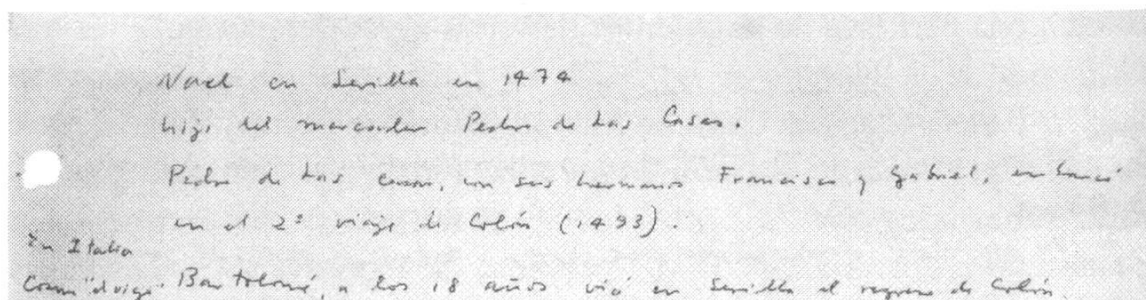 Nació en Sevilla en 1474
hijo del mercader Pedro de Las Casas.
Pedro de Las Casas, con sus hermanos Francisco y Gabriel, embarcó
en el 2º viaje de Colón (1493).
En Italia
Bartolomé, a los 18 años vió en Sevilla el regreso de Colón